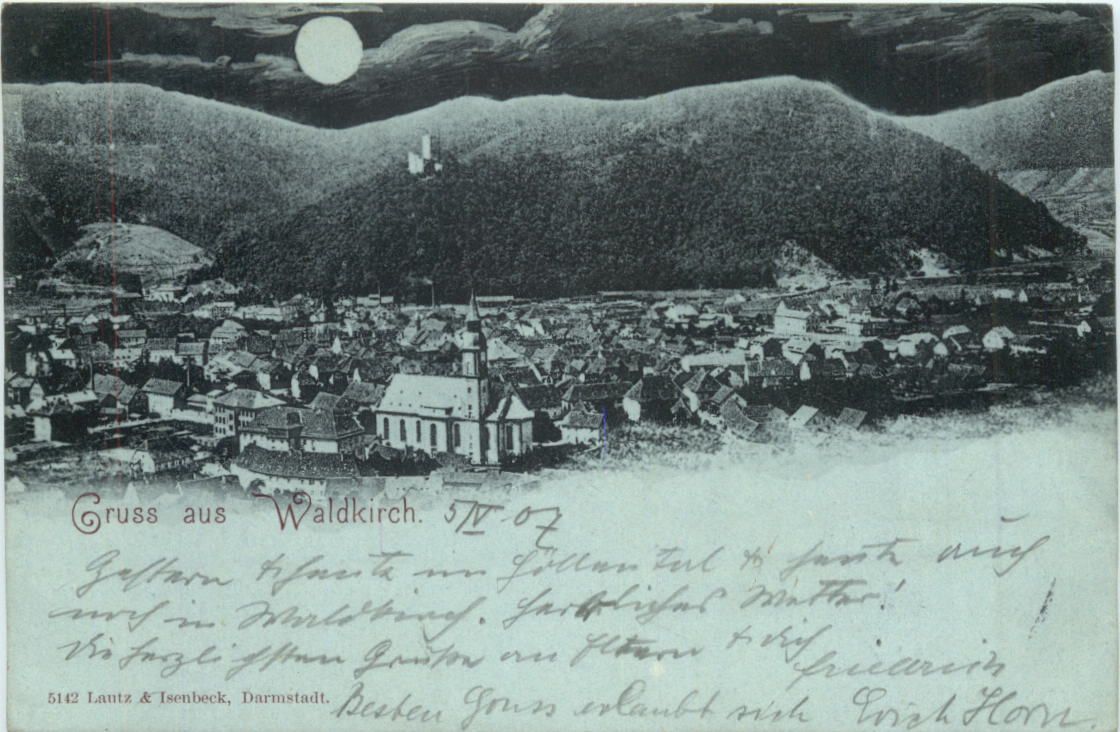 Gruss aus Waldkirch. 5/IV 07
Gestern & heute im Höllental & heute auch
noch in Waldkirch. herrliches Wetter!
Die herzlichsten Grüße an Eltern & dich
Friedrich
5142 Lautz & Isenbeck, Darmstadt.
Besten Gruss erlaubt sich Erich Horn.